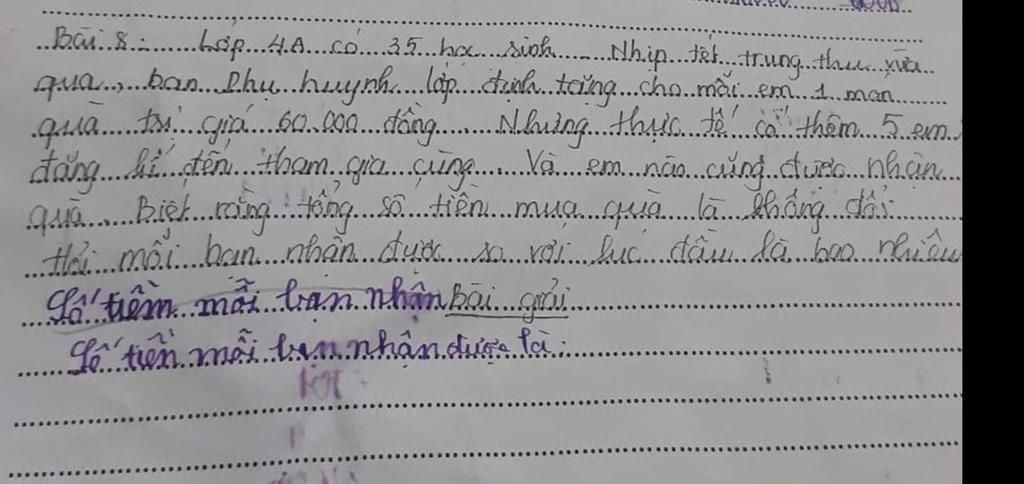 Bài 8: Lớp 4A có 35 học sinh. Nhịp tết trung thu vừa
qua, ban Phụ huynh lớp định tặng cho mỗi em 1 mon
quà trị giá 60.000 đồng. Nhưng thực tế có thêm 5 em
đăng kí đến tham gia cùng. Và em nào cũng được nhận
quà. Biết rằng tổng số tiền mua quà là không đổi
Hỏi mỗi bạn nhận được so với lúc đầu là bao nhiêu
Số tiềm mỗi bạn nhận bài giải
Số tiền mỗi bạn nhận được là: